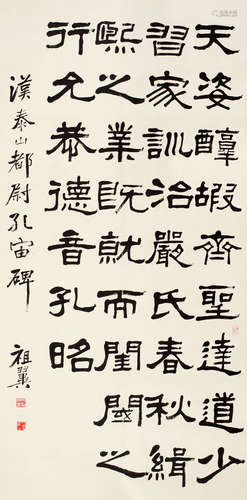 天姿醇嘏齊聖達道少
習家訓治嚴氏春秋緝
熙之業既就而閨閾之
行允恭德音孔昭
漢泰山都尉孔宙碑
祖翼